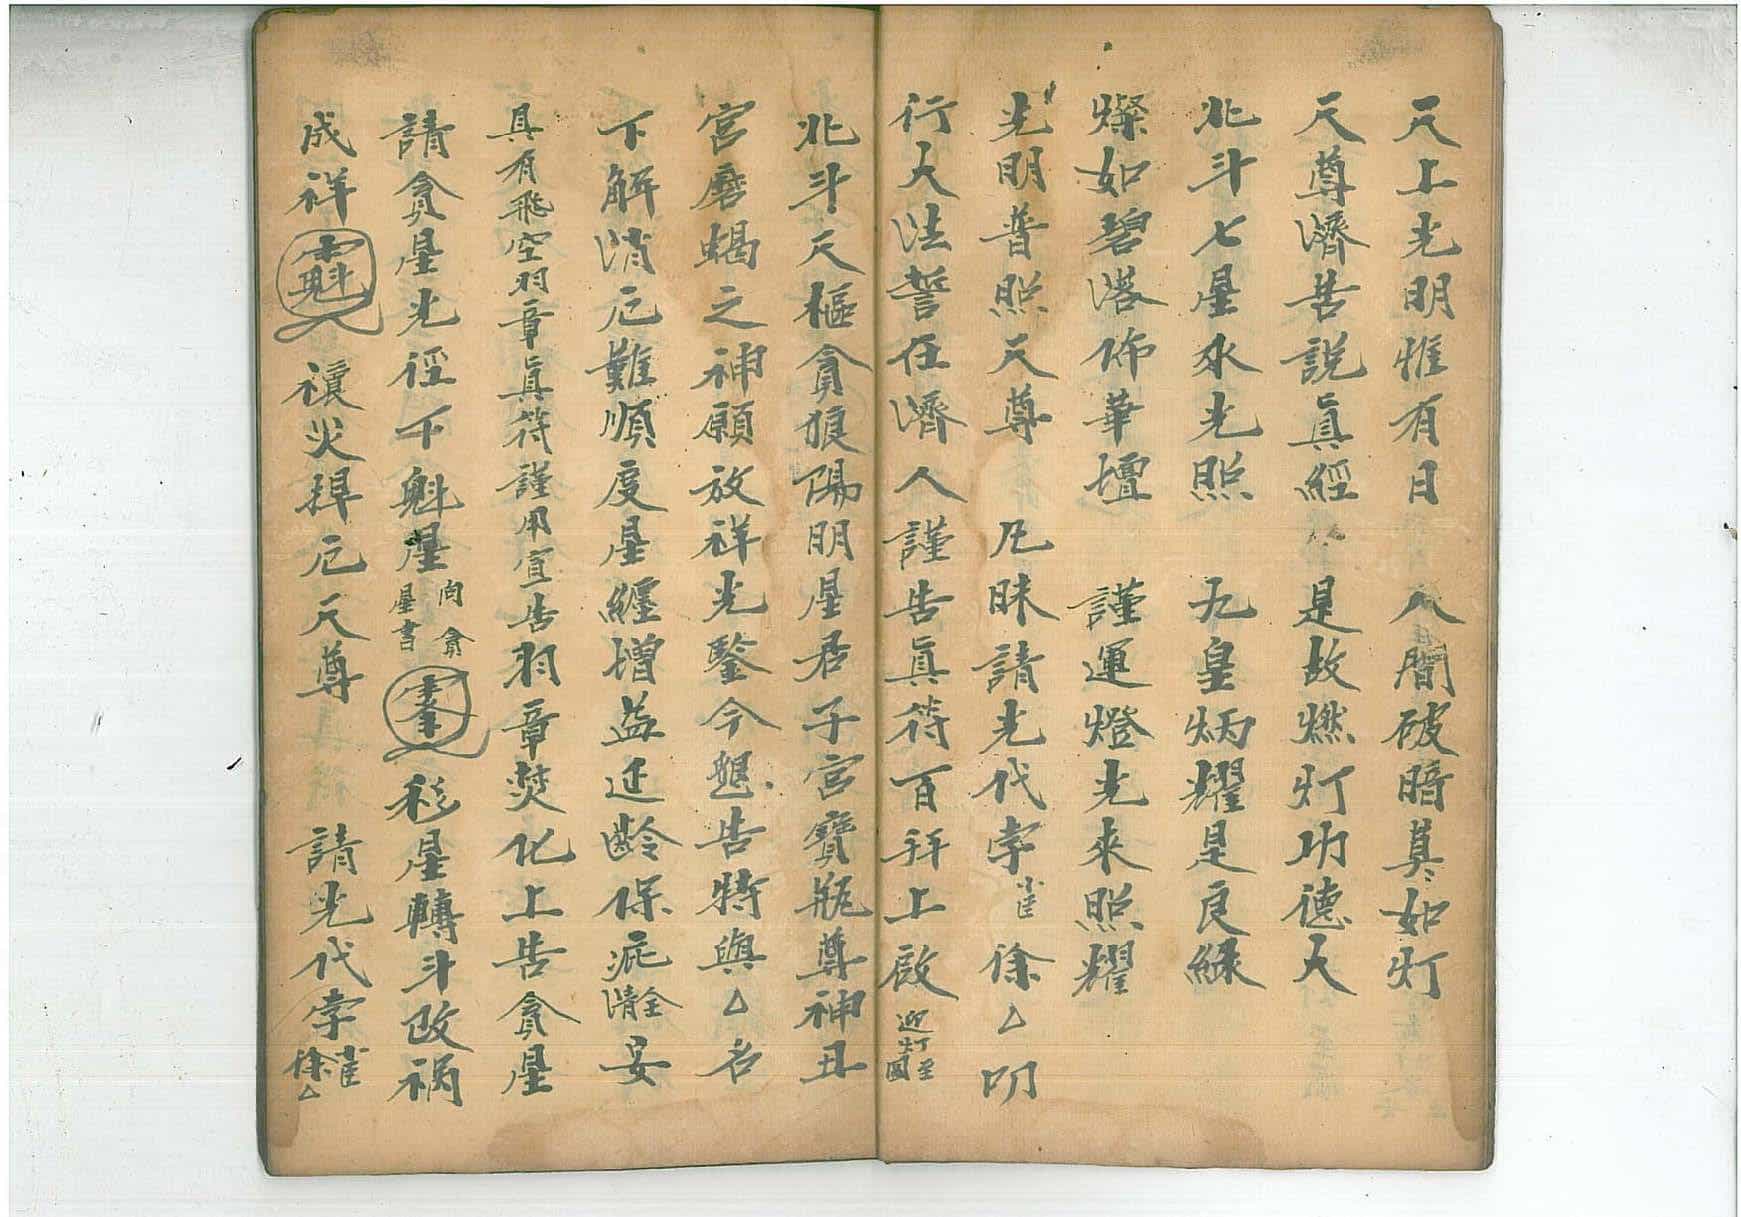 天上光明惟有日　人間破暗莫如灯
天尊濟苦説真經　是故燃灯功德大
北斗七星水光照　九皇炳耀是良緣
燦如碧落佈華壇　謹運燈光来照耀
光明普照天尊　凡昧請光代孛小臣徐△叨
行大法誓在濟人謹告真符百拜上啟迎灯至圖
北斗天樞貪狼陽明星君子宮寶瓶尊神丑
宮磨蝎之神願放祥光鑒今懇告特與△名
下解消厄難順度星纏增益延齡保疵清全安
具有飛空羽章真符謹用宣告羽章焚化上告貪星
請貪星光徑下魁星向貪星書移星轉斗改禍
成祥　禳災捍厄天尊　請光代孛小臣徐△